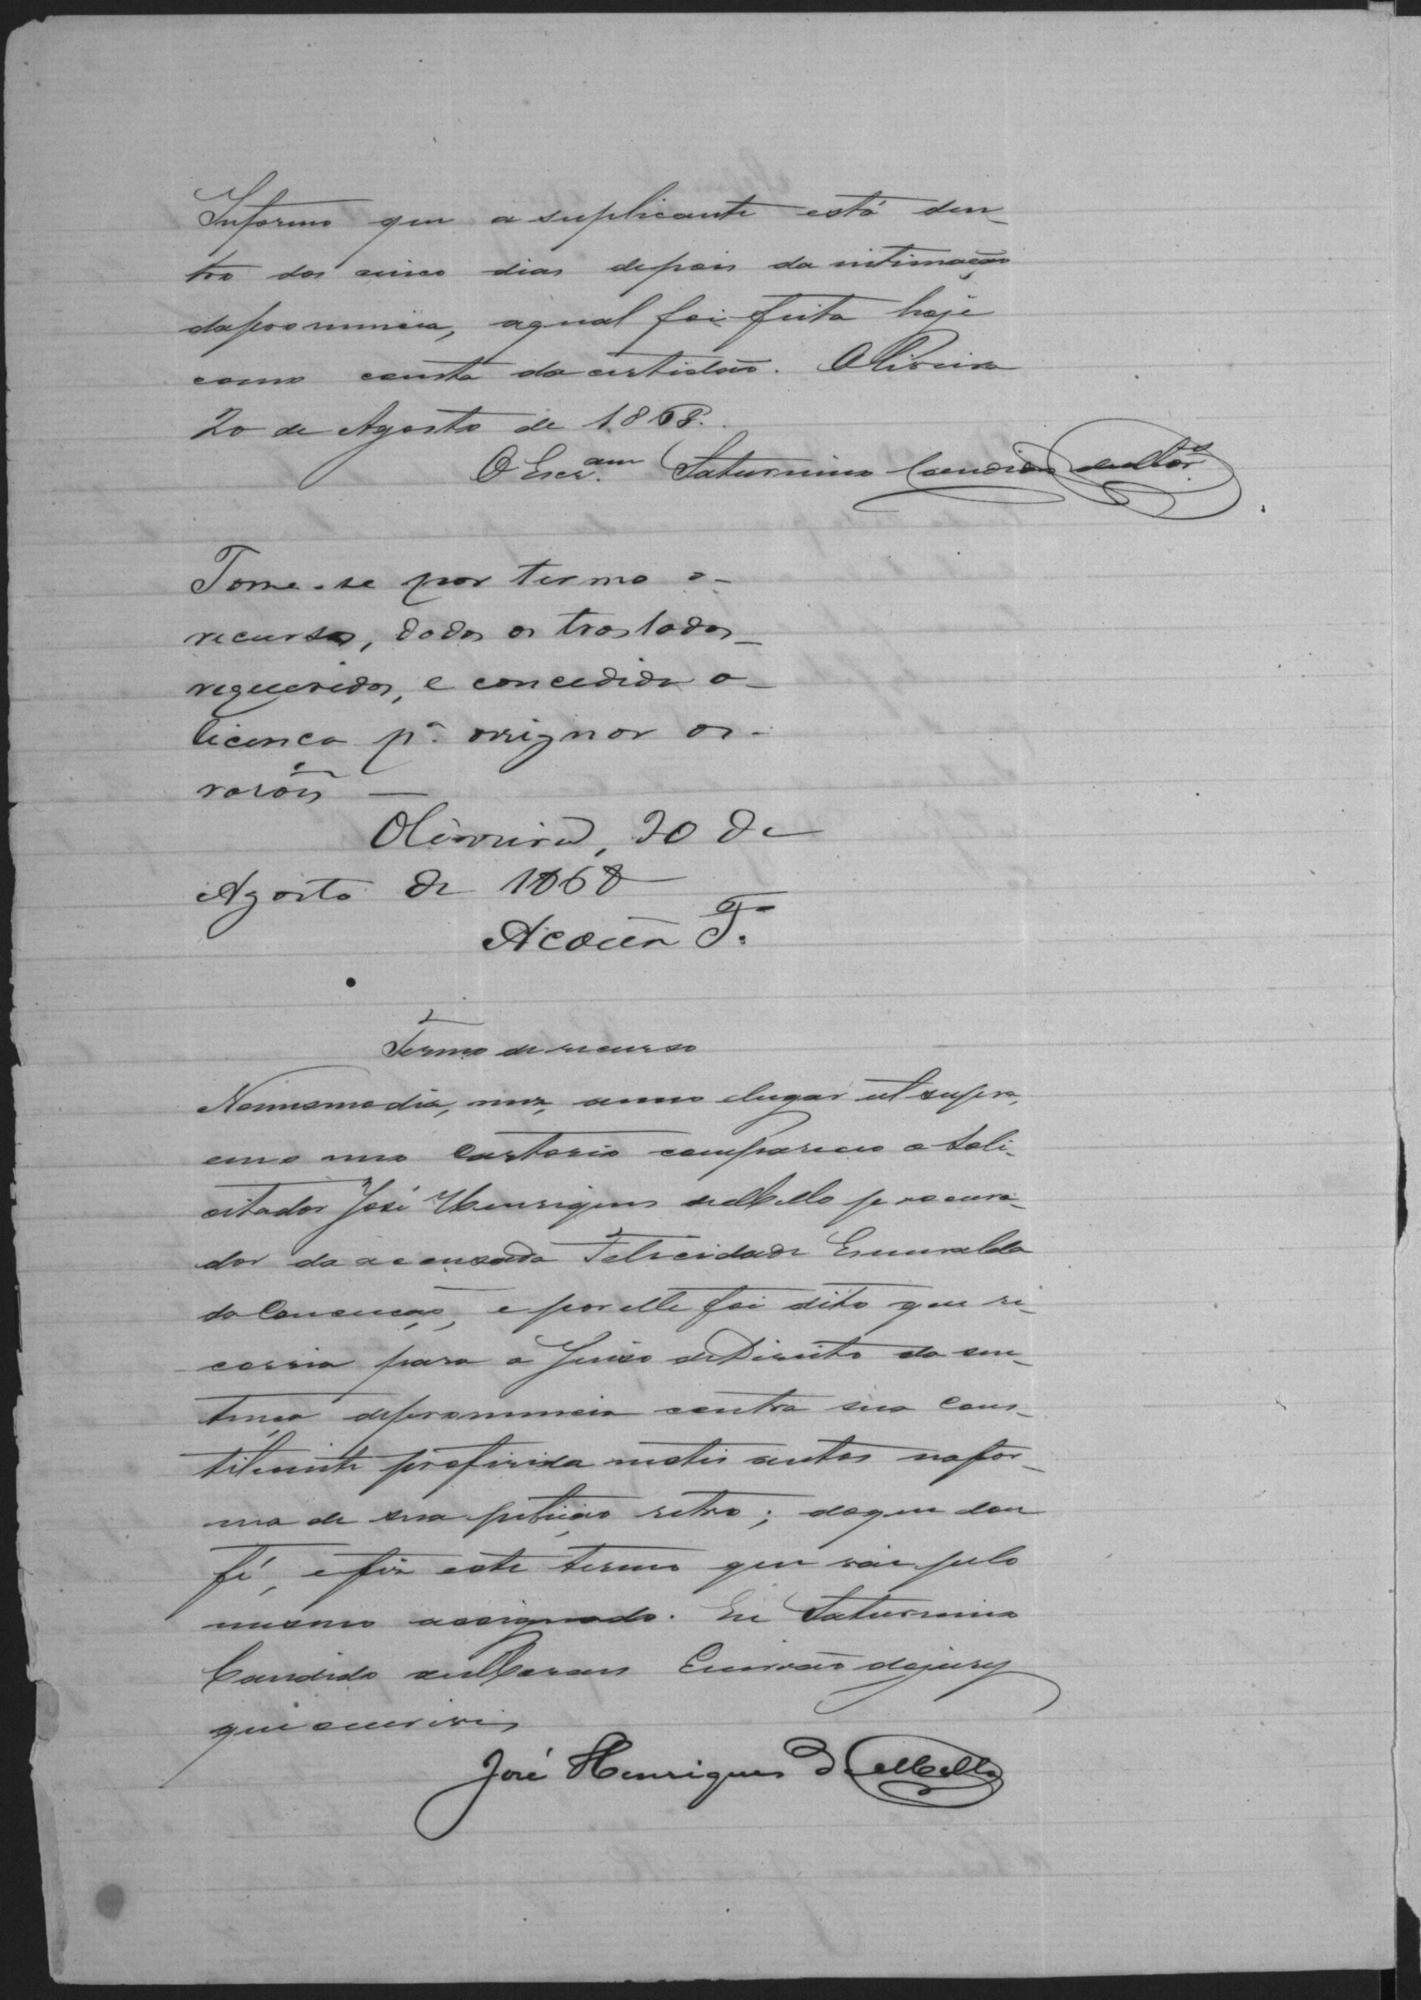 Informo que a suplicante está den-
tro dos cinco dias depois da intimação
dapronuncia, aqual foi feita hoje
como consta da certidão. Oliveira
20 de Agosto de 1868.
O Escr.am Saturnino Candido
Tome-se por termo o
recurso, dados os traslados
requeridos, e concedida a
licença pª. assignar as
rasões —
Oliveira, 20 de
Agosto de 1868
T.
Termo de recurso
Nomesmodia, mez, anno elugar ut supra,
em o meo Cartorio compareceo o Soli-
citador José Henriques deMello procura-
dor da accusada Felicidade Esmeralda
da Conceição, e por elle foi dito que re-
corria para o Juizo deDireito da sen-
tença depronuncia contra sua cons-
tituinte proferida nestes autos nafor-
ma de sua petição retro; doque dou
fé, e fiz este termo que vai pelo
mesmo assignado. Eu Saturnino
Candido deMoraes Escrivão dojury
que escrivi
José Henriques de Mello